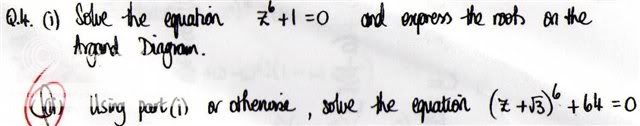 Q.4. (i) Solve the equation z⁶ + 1 = 0 and express the roots on the
Argand Diagram.
(ii) Using part (i) or otherwise, solve the equation (z + √3)⁶ + 64 = 0